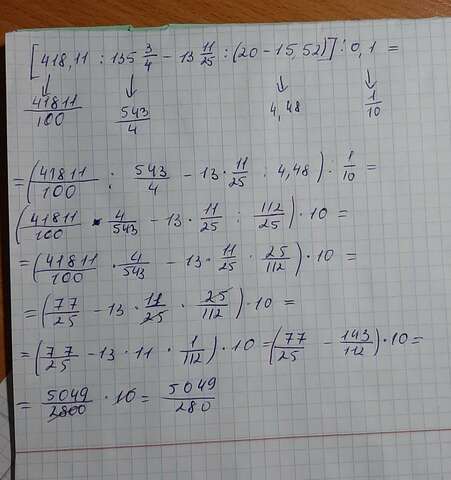 [418,11 : 135 3/4 − 13 11/25 : (20 − 15,52)] : 0,1 =
↓ ↓ ↓ ↓
41811/100 543/4 4,48 1/10
= (41811/100 : 543/4 − 13 · 11/25 : 4,48) · 1/10 =
(41811/100 · 4/543 − 13 · 11/25 : 112/25) · 10 =
= (41811/100 · 4/543 − 13 · 11/25 · 25/112) · 10 =
= (77/25 − 13 · 11/25 · 25/112) · 10 =
= (77/25 − 13 · 11 · 1/112) · 10 = (77/25 − 143/112) · 10 =
= 5049/2800 · 10 = 5049/280